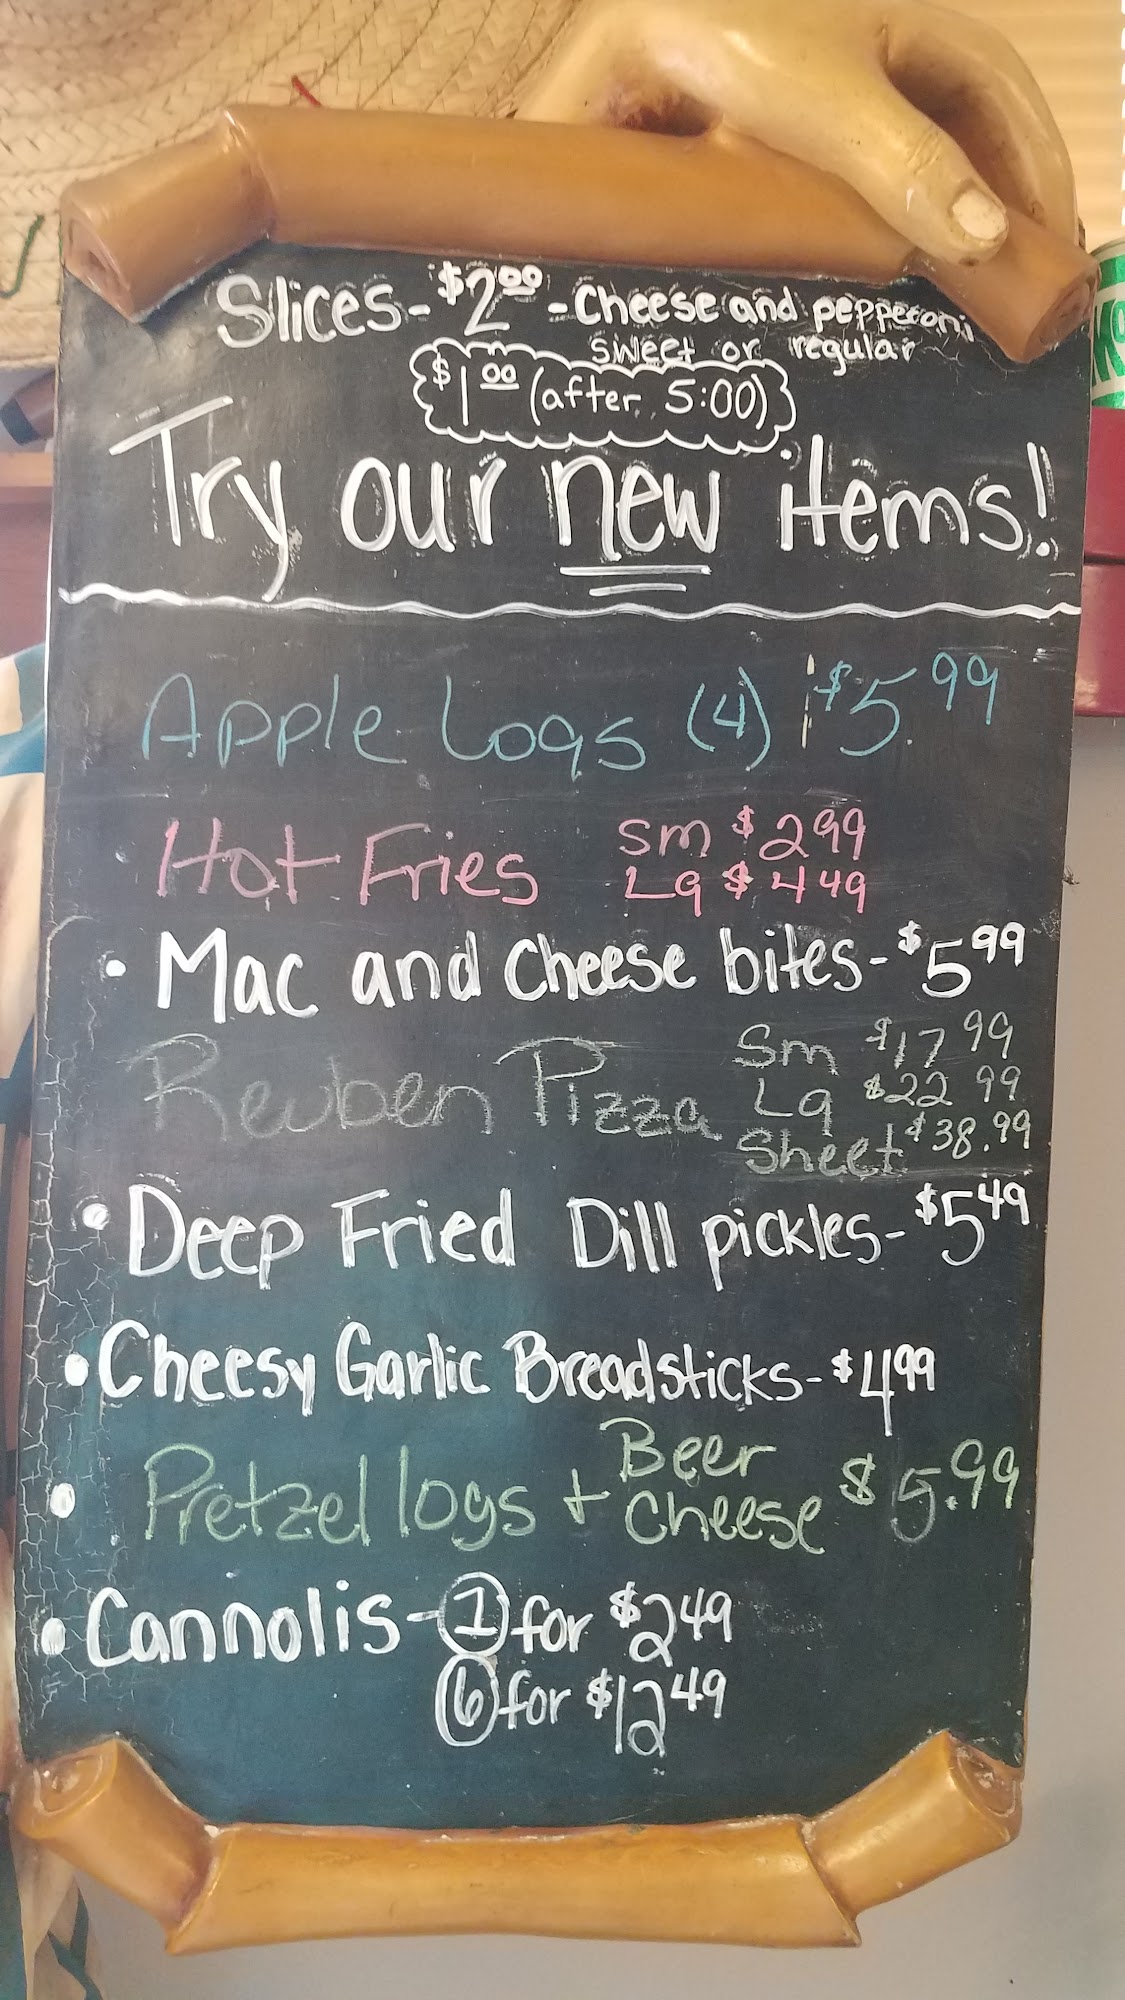 Slices - $2.00 - Cheese and pepperoni
sweet or regular
$1.00 (after 5:00)
Try our new items!
Apple Logs (4) $5.99
Hot Fries Sm $2.99
Lg $4.49
• Mac and Cheese bites - $5.99
Reuben Pizza Sm $17.99
Lg $22.99
Sheet $38.99
• Deep Fried Dill pickles - $5.49
• Cheesy Garlic Breadsticks - $4.99
• Pretzel logs + Beer Cheese $5.99
• Cannolis - 1 for $2.49
6 for $12.49